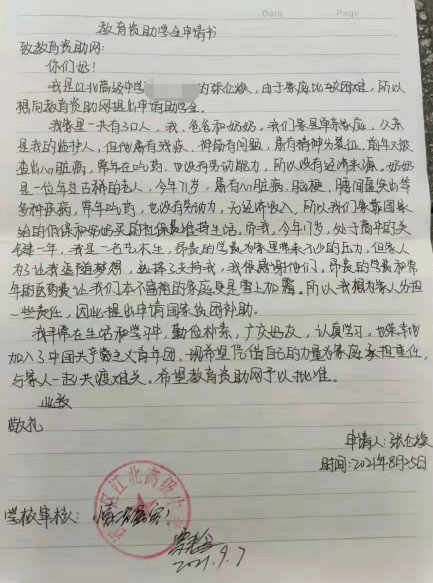 Date
Page
教育资助学金申请书
致教育资助网:
你们好!
我是江北高级中学 的张 ,由于家庭比较困难,所以
想向教育资助网提出申请助学金。
我家里一共有3口人,我、爸爸和奶奶。我们家是单亲家庭,父亲
是我的监护人,但他属有残疾、神经有问题,患有精神分裂症,前年又被
查出心脏病,常年在吃药,也没有劳动能力,所以没有经济来源。奶奶
是一位年过古稀的老人,今年71岁,患有心脏病、脑梗、腰间盘突出等
多种疾病,常年吃药,也没有劳动力,无经济收入,所以我们家靠国家
给的低保和奶奶买的社保费维持生活。而我,今年17岁,处于高中的关
键一年,我是一名艺术生,昂贵的学费为家里带来不少的压力,但家人
为了让我追随梦想,选择了支持我,我很感谢他们。昂贵的学费和常
年的医药费让我们本不富裕的家庭更是雪上加霜。所以我想为家人分担
一些责任,因此提出申请国家贫困补助。
我平常在生活和学习中,勤俭朴素,广交好友,认真学习。也荣幸地
加入了中国共产主义青年团,现希望凭借自己的力量为家庭承担重任,
与家人一起共渡难关。希望教育资助网予以批准。
此致
敬礼
申请人:张
时间:2021年8月25日
江北高级
学校审核:情况属实!
2021.9.7